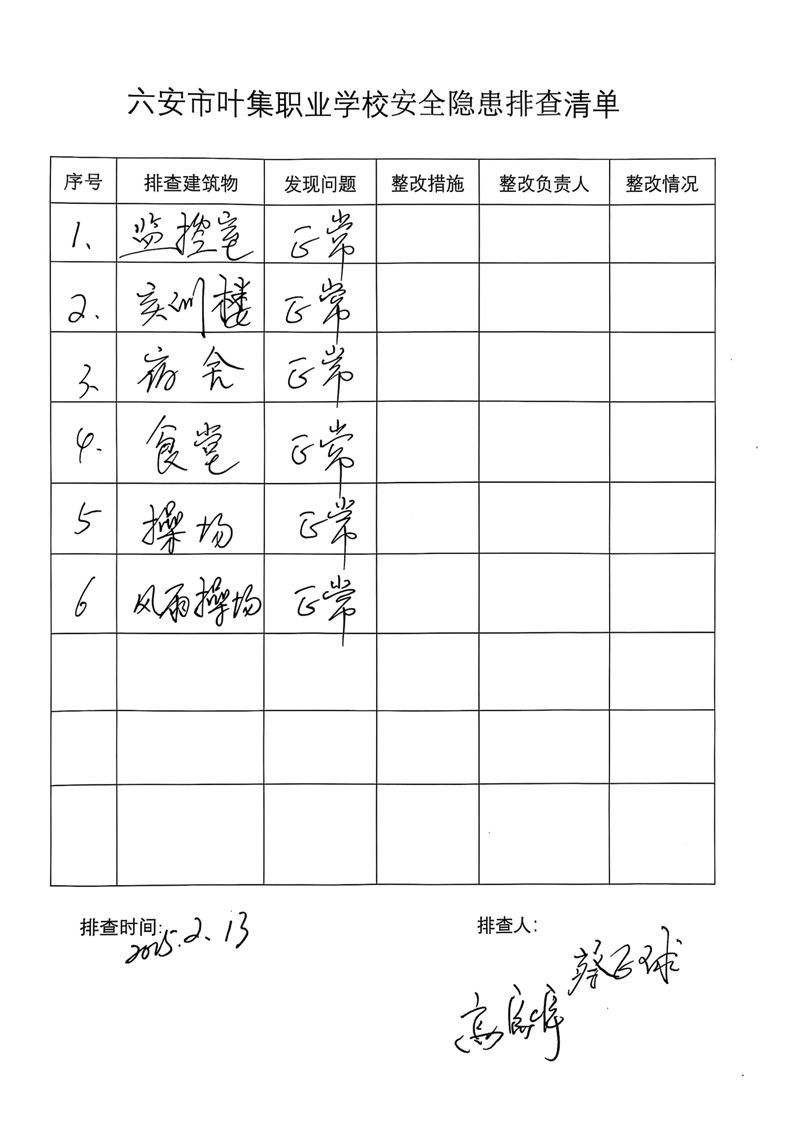 六安市叶集职业学校安全隐患排查清单
序号 排查建筑物 发现问题 整改措施 整改负责人 整改情况
1、 监控室 正常
2. 实训楼 正常
3、 宿舍 正常
4. 食堂 正常
5 操场 正常
6 风雨操场 正常
排查时间: 2025.2.13 排查人:
蔡正球
高